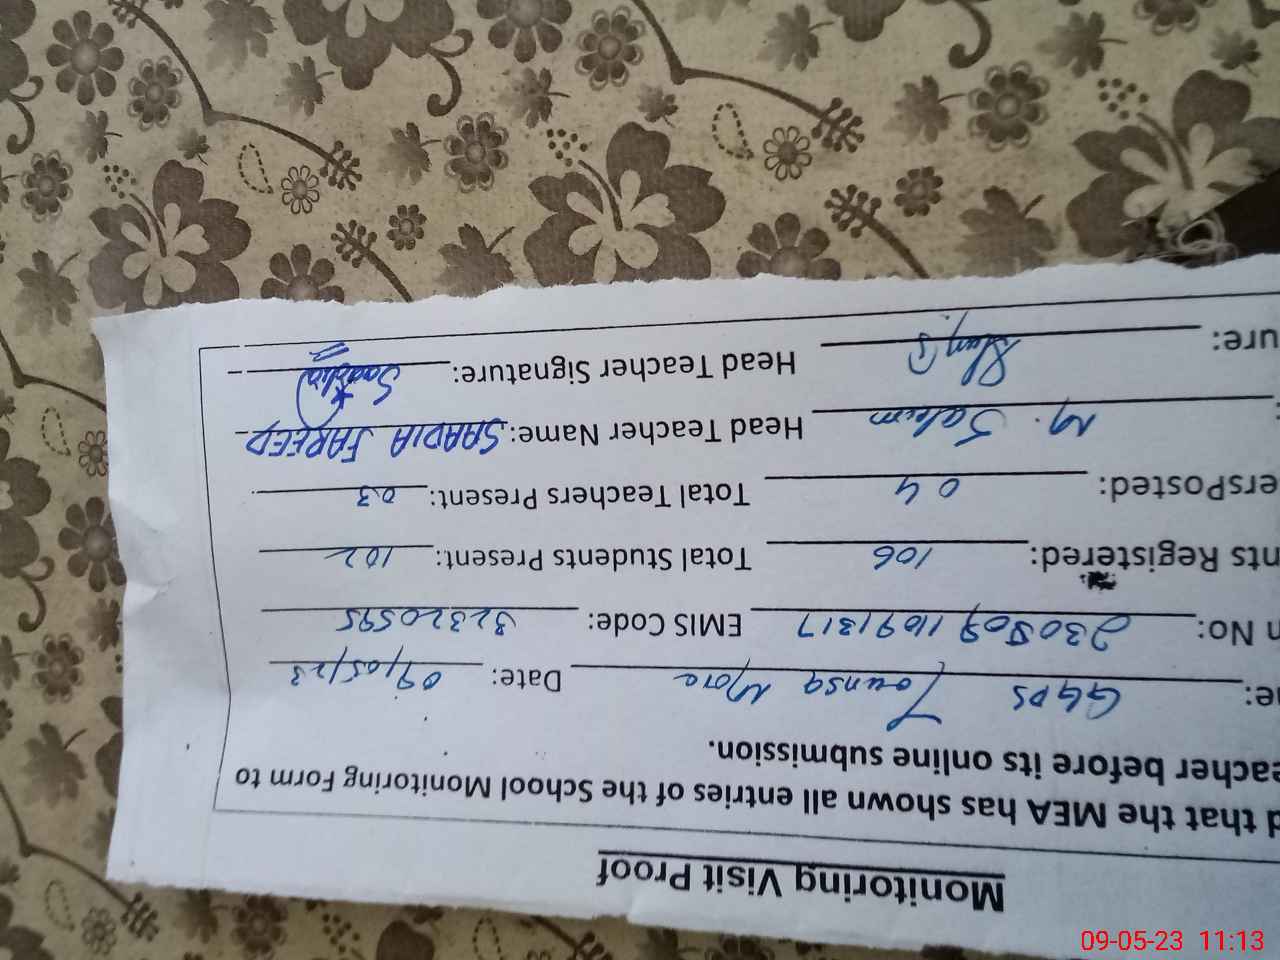 Monitoring Visit Proof
d that the MEA has shown all entries of the School Monitoring Form to
eacher before its online submission.
e: GGPS Tounsa More Date: 09/05/23
n No: 23050911091317 EMIS Code: 32320595
nts Registered: 106 Total Students Present: 102
ersPosted: 04 Total Teachers Present: 03
M. Saleem Head Teacher Name: SAADIA FAREED
ure: Head Teacher Signature: Saadia
09-05-23 11:13